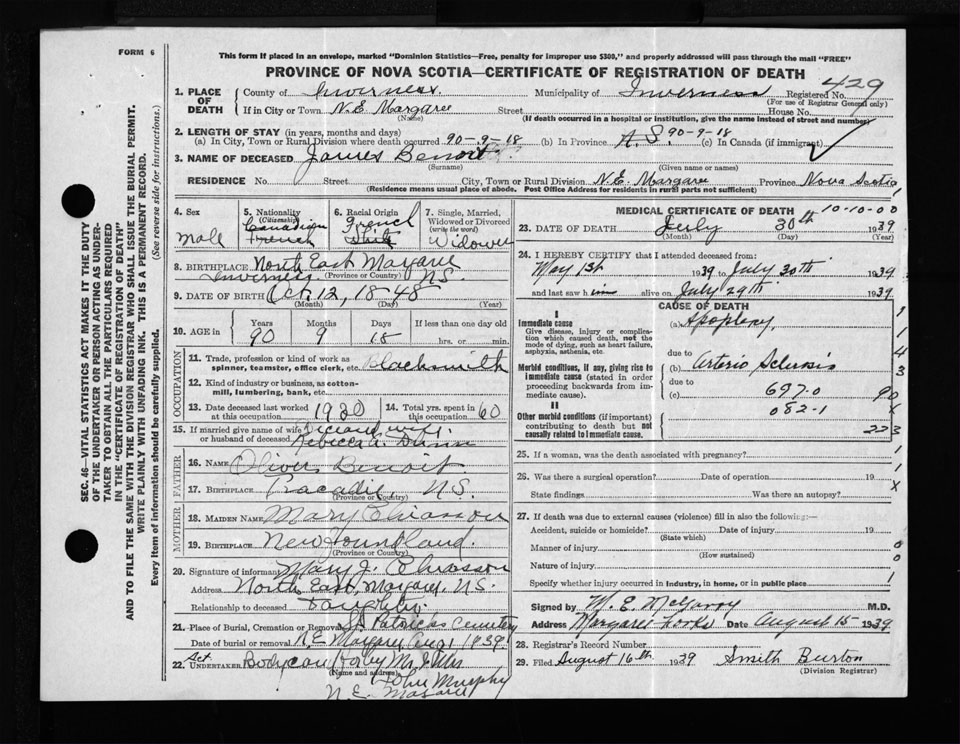 FORM 6
This form if placed in an envelope, marked "Dominion Statistics—Free, penalty for improper use $300," and properly addressed will pass through the mail "FREE"
PROVINCE OF NOVA SCOTIA—CERTIFICATE OF REGISTRATION OF DEATH
429
1. PLACE OF DEATH
County of Inverness. Municipality of Inverness Registered No.
(For use of Registrar General only)
If in City or Town N.E. Margaree Street House No.
(Name) (If death occurred in a hospital or institution, give the name instead of street and number)
2. LENGTH OF STAY (in years, months and days)
(a) In City, Town or Rural Division where death occurred 90-9-18 (b) In Province 90-9-18 (c) In Canada (if immigrant)
3. NAME OF DECEASED James Benoit
(Surname) (Given name or names)
RESIDENCE No. Street City, Town or Rural Division N.E. Margaree Province Nova Scotia
(Residence means usual place of abode. Post Office Address for residents in rural parts not sufficient)
4. Sex
male
5. Nationality (Citizenship)
Canadian
French
6. Racial Origin
French
7. Single, Married, Widowed or Divorced (write the word)
Widower
8. BIRTHPLACE North East Margaree
Inverness N.S.
(Province or Country)
9. DATE OF BIRTH Oct 12, 1848
(Month) (Day) (Year)
10. AGE in
Years Months Days If less than one day old
90 9 18 hrs. or min.
OCCUPATION
11. Trade, profession or kind of work as spinner, teamster, office clerk, etc. Blacksmith
12. Kind of industry or business, as cotton-mill, lumbering, bank, etc.
13. Date deceased last worked at this occupation 1930
14. Total yrs. spent in this occupation 60
15. If married give name of wife or husband of deceased
Rebecca A.
FATHER
16. Name Oliver Benoit
17. Birthplace Tracadie N.S.
(Province or Country)
MOTHER
18. Maiden Name Mary Chiasson
19. Birthplace Newfoundland.
(Province or Country)
20. Signature of informant Mary J. Chiasson
Address North East, Margaree, N.S.
Relationship to deceased Daughter.
21. Place of Burial, Cremation or Removal St. Patricks Cemetery
Date of burial or removal N.E. Margaree Aug 1 1939
22. Act. UNDERTAKER
(Name and address)
John Murphy
N.E. Margaree
MEDICAL CERTIFICATE OF DEATH
10-10-00
23. DATE OF DEATH July 30th 1939
(Month) (Day)
24. I HEREBY CERTIFY that I attended deceased from:
May 1st 1939 to July 30th 1939
and last saw him alive on July 29th 1939
CAUSE OF DEATH
I
Immediate cause
Give disease, injury or complication which caused death, not the mode of dying, such as heart failure, asphyxia, asthenia, etc.
(a) Apoplexy.
due to
Morbid conditions, if any, giving rise to immediate cause (stated in order proceeding backwards from immediate cause).
(b) Arterio Sclerosis
due to
(c) 697-0
082-1
II
Other morbid conditions (if important) contributing to death but not causally related to immediate cause.
25. If a woman, was the death associated with pregnancy?
26. Was there a surgical operation? Date of operation 19
State findings Was there an autopsy?
27. If death was due to external causes (violence) fill in also the following:—
Accident, suicide or homicide? Date of injury 19
(State which)
Manner of injury
(How sustained)
Nature of injury
Specify whether injury occurred in industry, in home, or in public place
Signed by M. E. McGarry M.D.
Address Margaree Forks Date August 15 1939
28. Registrar's Record Number
29. Filed August 16th 1939 Smith Burton
(Division Registrar)
SEC. 46—VITAL STATISTICS ACT MAKES IT THE DUTY
OF THE UNDERTAKER OR PERSON ACTING AS UNDER-
TAKER TO OBTAIN ALL THE PARTICULARS REQUIRED
IN THE "CERTIFICATE OF REGISTRATION OF DEATH"
AND TO FILE THE SAME WITH THE DIVISION REGISTRAR WHO SHALL ISSUE THE BURIAL PERMIT.
WRITE PLAINLY WITH UNFADING INK. THIS IS A PERMANENT RECORD.
Every item of information should be carefully supplied. (See reverse side for instructions.)